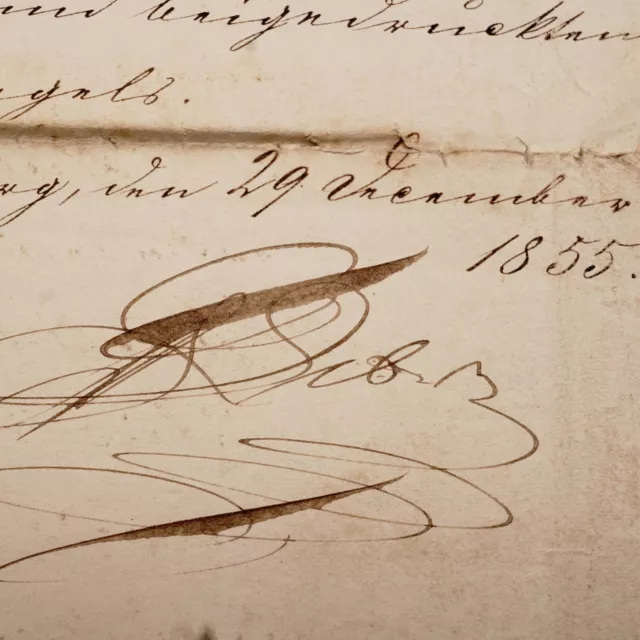 und beigedrucktem
igels.
rg, den 29. December
1855.